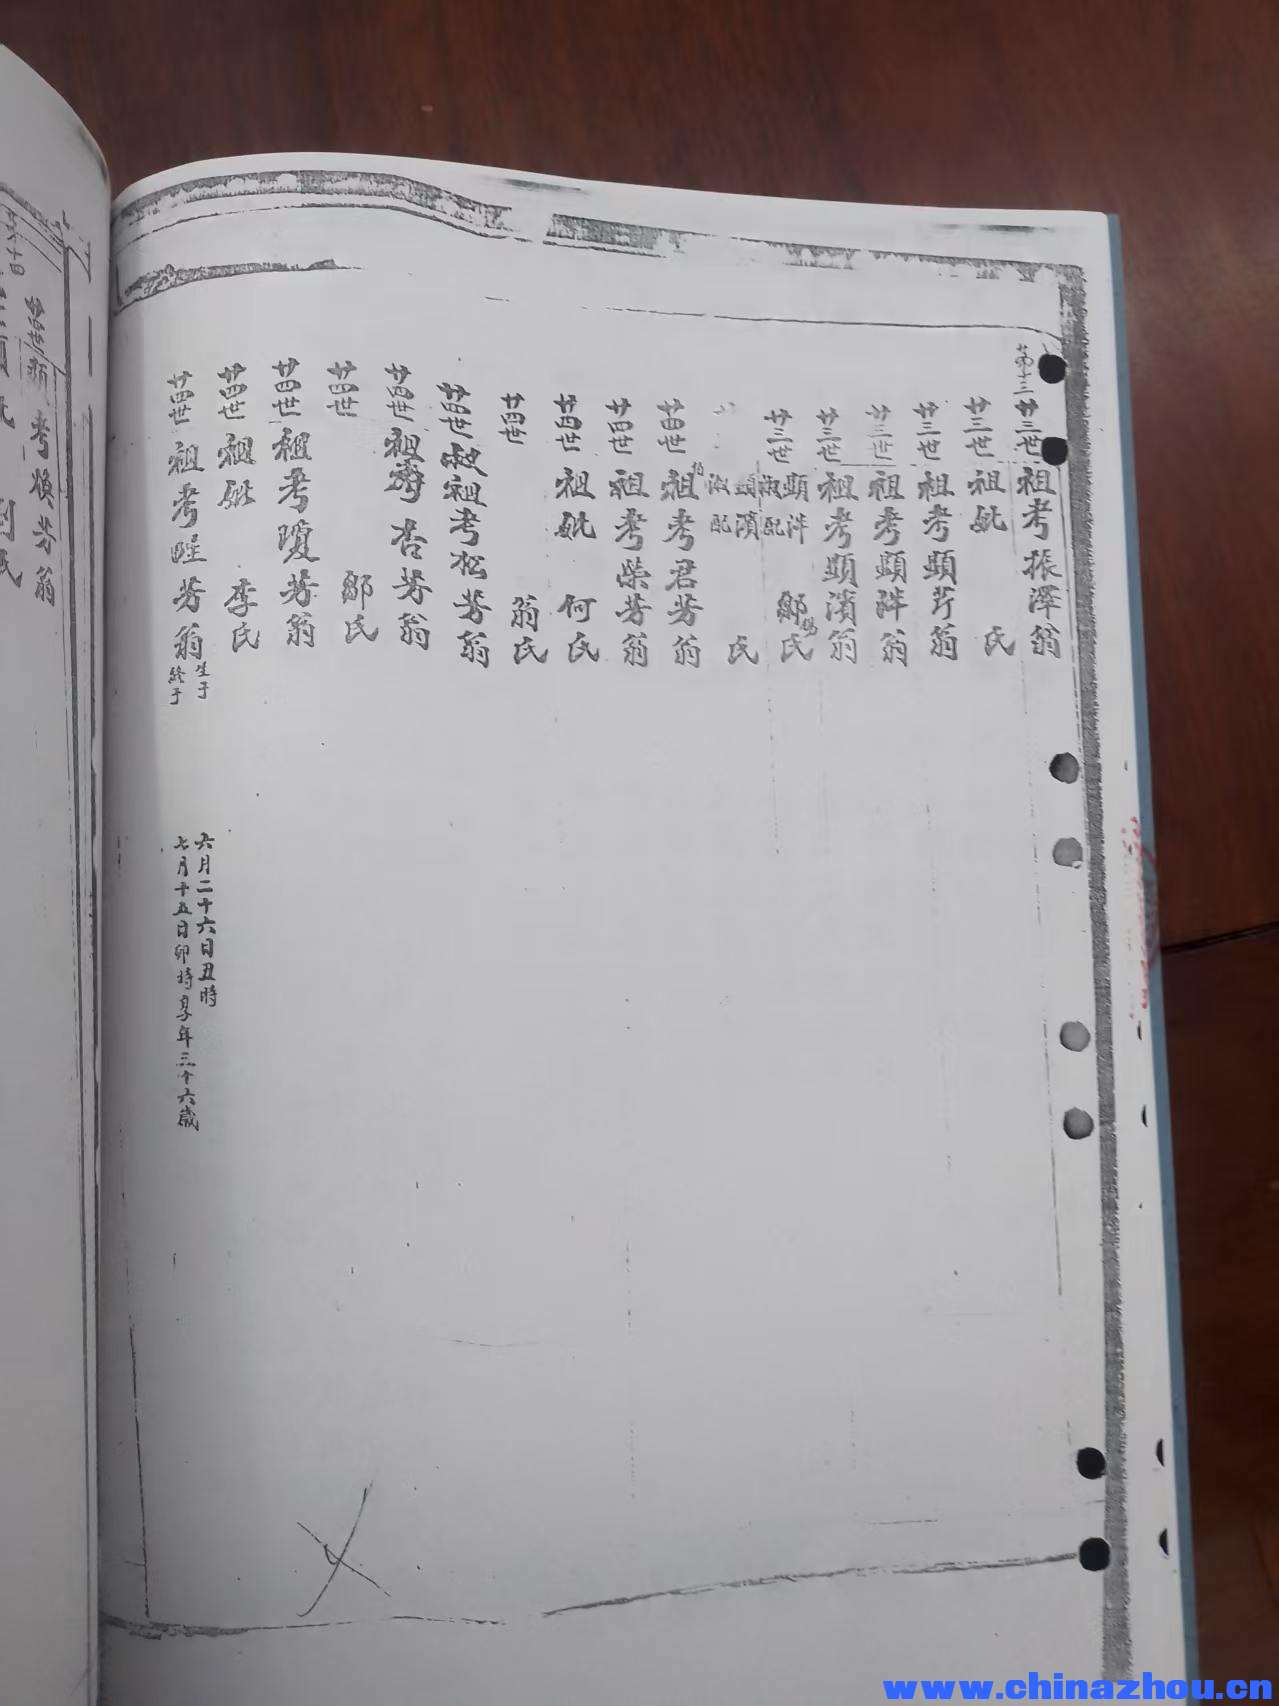 第十三
廿三世 祖考振澤翁
廿三世 祖妣 氏
廿三世 祖考顯芹翁
廿三世 祖考顯泮翁
廿三世 祖考顯濱翁
廿三世 顯泮淑配 鄒氏
顯濱淑配 氏
廿四世 祖考君芳翁
廿四世 祖考榮芳翁
廿四世 祖妣 何氏
廿四世 翁氏
廿四世 叔祖考松芳翁
廿四世 祖考杏芳翁
廿四世 鄒氏
廿四世 祖考瓊芳翁
廿四世 祖妣 李氏
廿四世 祖考 芳翁
生于 六月二十六日丑時
終于 七月十五日卯時享年三十六歲
廿四世 顯考煥芳翁
劉氏
www.chinazhou.cn